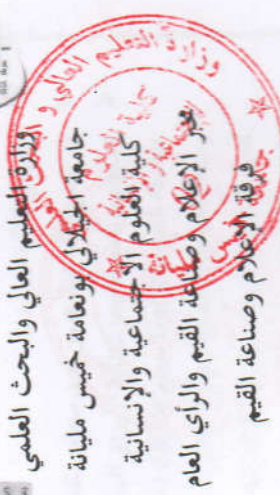 وزارة التعليم العالي والبحث العلمي
جامعة الجيلالي بونعامة خميس مليانة
كلية العلوم الاجتماعية والإنسانية
مخبر الإعلام وصناعة القيم والرأي العام
فرقة الإعلام وصناعة القيم
وزارة التعليم العالي و البحث العلمي
جامعة خميس مليانة
كلية العلوم